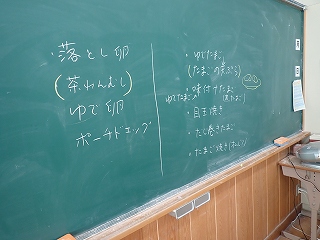 ・落とし卵
(茶わんむし)
ゆで卵
ポーチドエッグ
・ゆでたまご
(たまごの天ぷら)
・味付けたまご
ゆでたまご
・目玉焼き
・だし巻きたまご
・たまご焼き